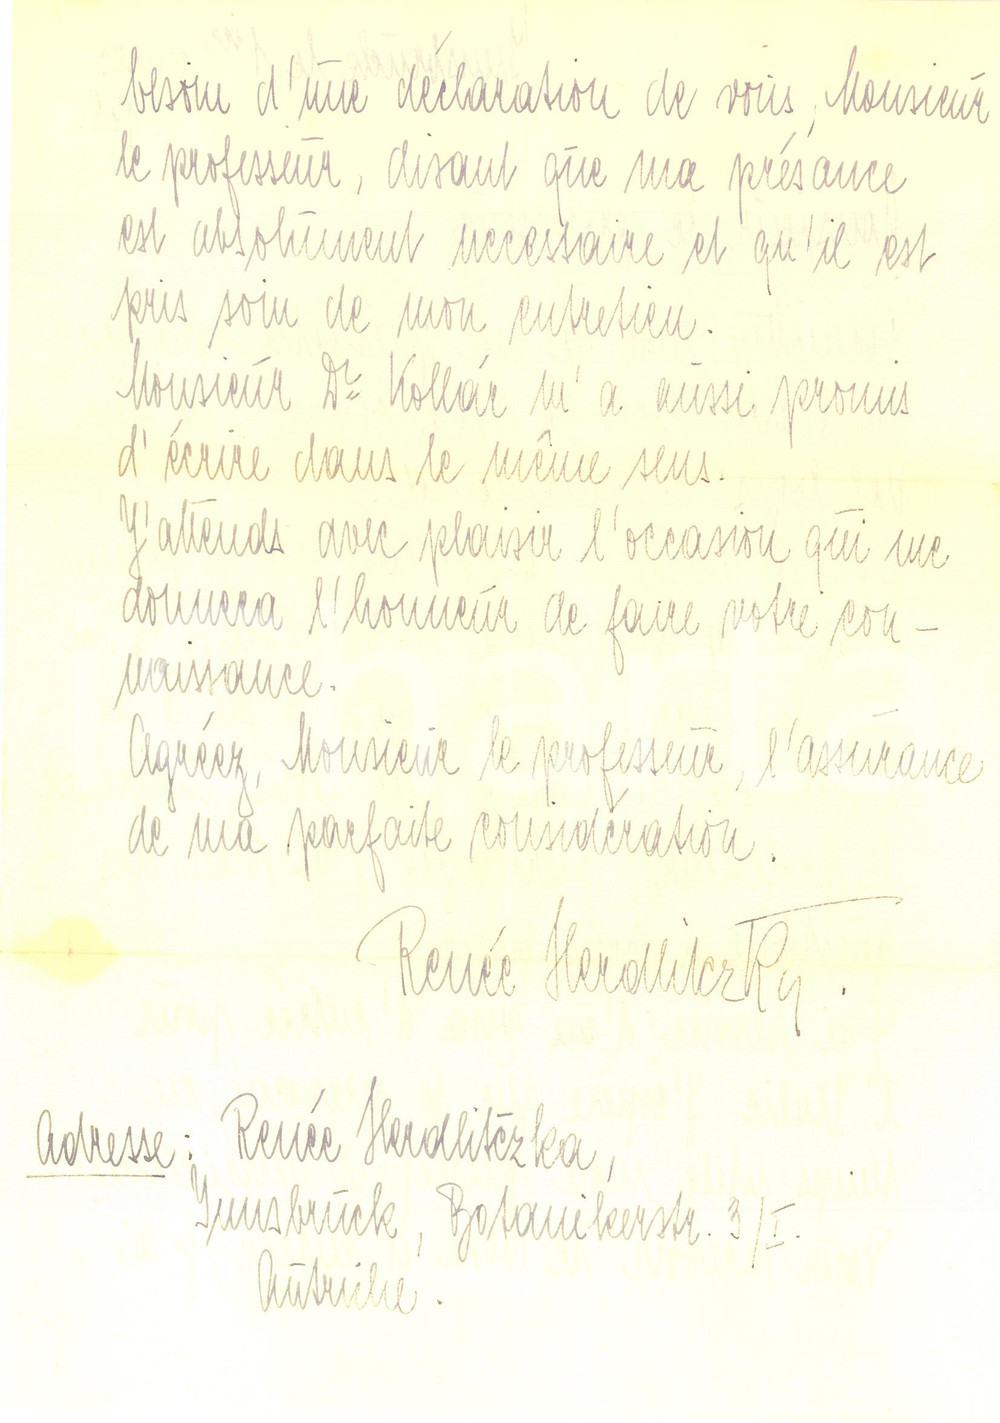 besoin d'une déclaration de vous, Monsieur
le professeur, disant que ma présance
est absolument necessaire et qu'il est
pris soin de mon entretien.
Monsieur Dr. Kollár m'a aussi promis
d'écrire dans le même sens.
J'attends avec plaisir l'occasion qui me
donnera l'honneur de faire votre con-
naissance.
Agréez, Monsieur le professeur, l'assurance
de ma parfaite considération.
Renée Herdlitczky.
Adresse: Renée Herdlitczka,
Innsbruck, Botanikerstr. 3/I.
Autriche.